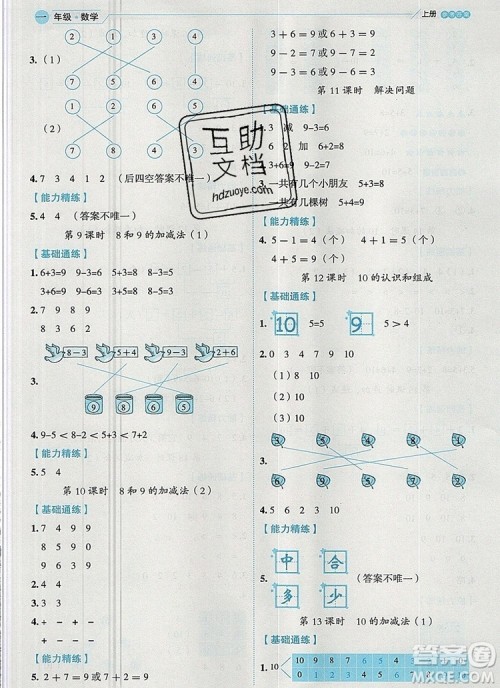 一 年级·数学
上册
2 1 4 3
3.(1)
7 5 4 6
7 0 8 2
(2)
1 8 6 0
4. 7 3 8 4 1 2 (后四空答案不唯一)
【能力精练】
5. 4 4 (答案不唯一)
第9课时 8和9的加减法(1)
【基础通练】
1. 6+3=9 9-3=6 5+3=8 8-3=5
3+6=9 9-6=3 3+5=8 8-5=3
2. 7 9 8 9
8-3 5+4 9-3 2+6
3.
9 8 6 5
4. 9-5<8-2<3+5<7+2
【能力精练】
5. 5 4
第10课时 8和9的加减法(2)
【基础通练】
1. 7 4 9 9
6 3 8 8
2. 7 9 8 9
3. < > = =
< = < >
4. + - + -
- + - -
【能力精练】
5. 2+7=9或7+2=9
3+6=9或6+3=9
9-3=6或9-6=3
第11课时 解决问题
【基础通练】
1. 3 减 9-3=6
2. 6 加 6+2=8
3+6=9 9-3=6
3. 一共有几个小朋友 5+4=9
一共有几棵树 5+4=9
【能力精练】
4. 5-1=4(个) 4+1=5(个)
4+5=9(个)
第12课时 10的认识和组成
【基础通练】
1. 10 5=5 9 5>4
2. 0 3 4 7 10
(1) 8 10
(2) 9 8
(3) 10
3.
【能力精练】
4. 10 10
中 合
5. (答案不唯一)
多 少
第13课时 10的加减法(1)
【基础通练】
1. 10
10 9 8 7 6 5 4
0 1 2 3 4 5 6
互助文档
hdzuoye.com
答案圈
MXQE.COM